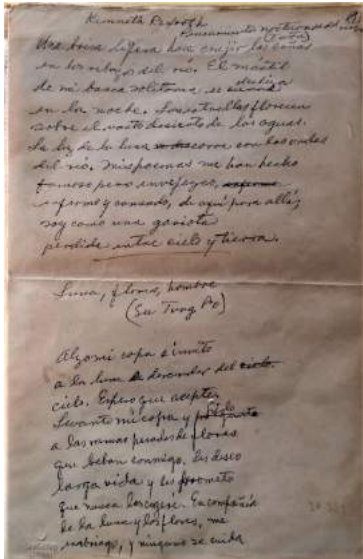 Kenneth Rexroth
Pensamientos nocturnos del viaje
(Tu Fu)
Una brisa ligera hace crujir las cañas
en los rebajos del río. El mástil
de mi barca solitaria se desliza
en la noche. Las estrellas florecen
sobre el vasto desierto de las aguas.
La luz de la luna corre con las ondas
del río. Mis poemas me han hecho
famoso pero envejezco,
enfermo y cansado, de aquí para allá;
soy como una gaviota
perdida entre cielo y tierra.
Luna, flores, hombre
(Su Tung Po)
Alzo mi copa e invito
a la luna a descender del
cielo. Espero que acepte.
Levanto mi copa y pido
a las ramas pesadas de flores
que beban conmigo. Les deseo
larga vida y les prometo
que nunca las cogeré. En compañía
de la luna y las flores, me
embriago, y ninguno se cuida